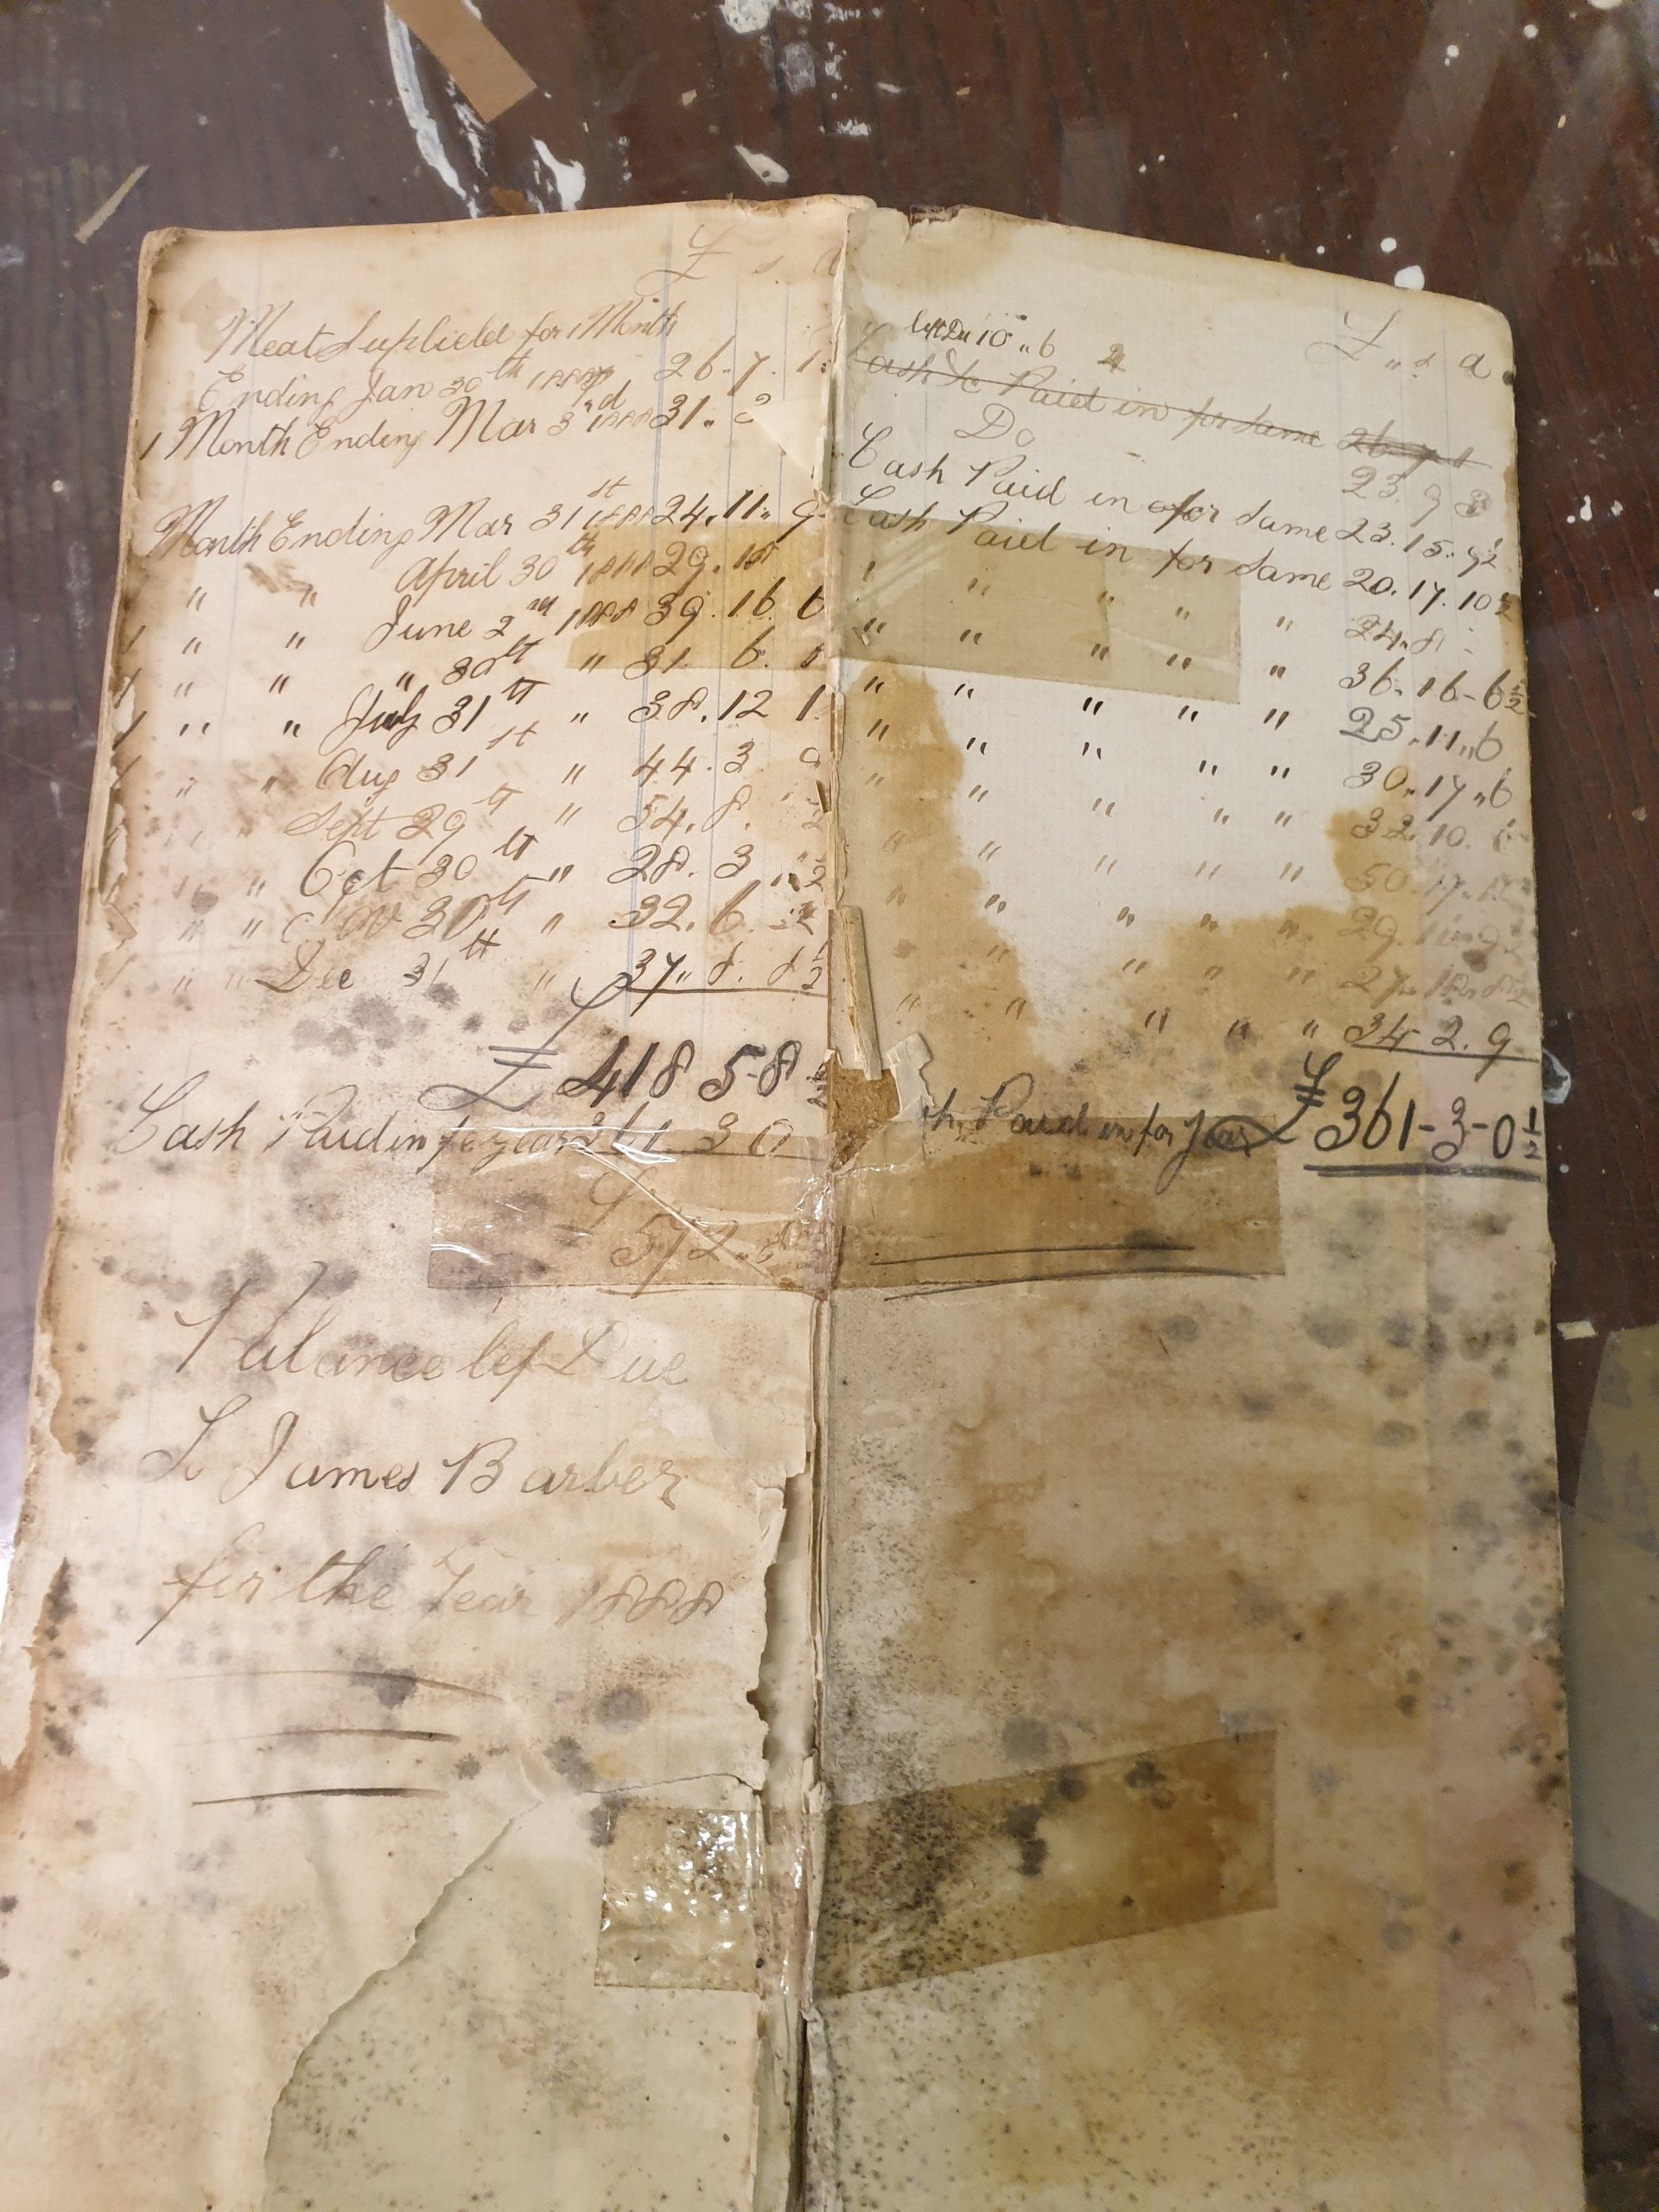 £ s d
Meat Suplield for Month
Ending Jan 30th 1888 26-7.1
1 Month Ending Mar 3rd 1888 31..
Month Ending Mar 31st 1888 24.11.. 9
" " April 30th 1888 29.
" " June 2nd 1888 39.16.6
" " " 30th " 31. 6.
" " July 31th " 38.12 1
" " Aug 31st " 44.3
" " Sept 29th " 54.8.
" " Oct 30th " 28.3
" " Nov 30th " 32.6.
" " Dec 31th " 37.. 8. 8½
£ 418 5-8
Cash Paid in for year 361 3 0
£
57 2..
Balance lef Due
To James Barber
for the Year 1888
left Due 10..6
£ .. s d
Cash Paid in for Same 26.7.1
Do 23. 9 3
Cash Paid in for Same 23.15..9½
Cash Paid in for Same 20.17.10½
" " " " 24..8
" " " " " 36-16-6½
" " " " " 25..11..6
" " " " " 30..17..6
" " " " " 32.10.
" " " " " 50.17.
" " " " " 29.
" " " " " 27.
" " " " " 34-2.9
Paid in for Year £361-3-0½